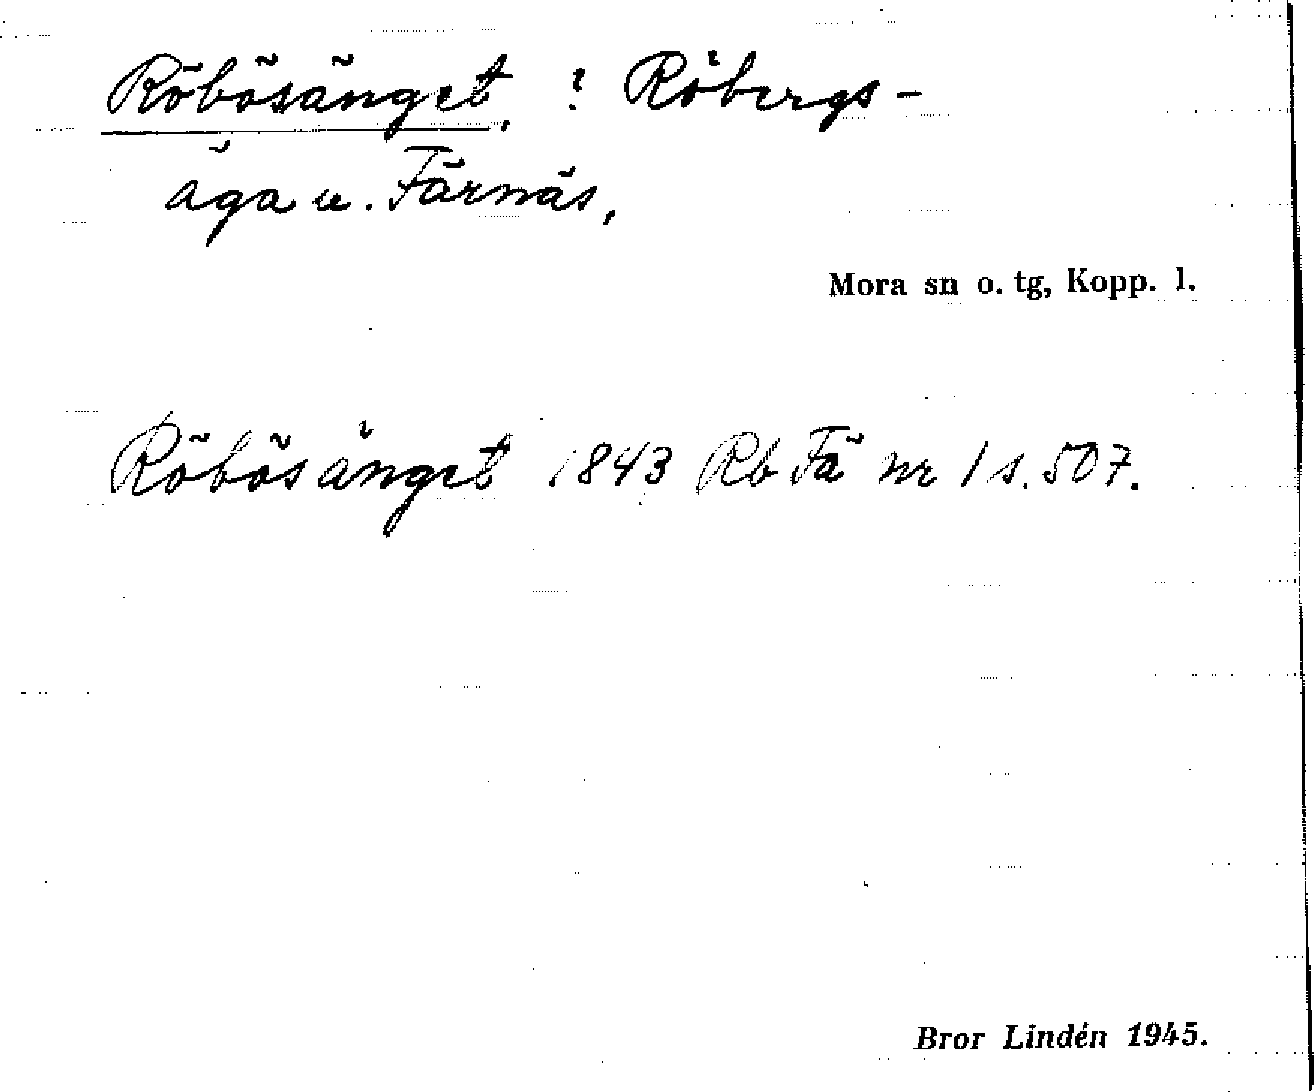 Röbösänget, ? Röbergs-
äga u. Färnäs,
Mora sn o. tg, Kopp. l.
Röbösänget 1843 Rb Fä nr 1 s. 507.
Bror Lindén 1945.